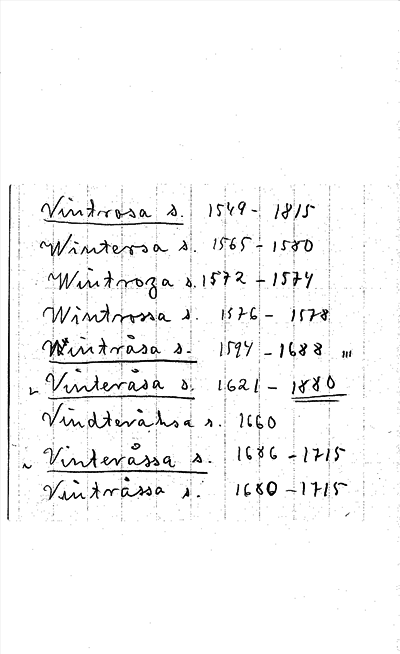 Vintrosa s. 1549 - 1815
Wintersa s. 1565 - 1580
Wintroza s. 1572 - 1574
Wintrossa s. 1576 - 1578
Wintråsa s. 1594 - 1688 "'
Vinteråsa s. 1621 - 1880
Vindteråhsa s. 1660
Vinteråssa s. 1686 - 1715
Vintråssa s. 1680 - 1715